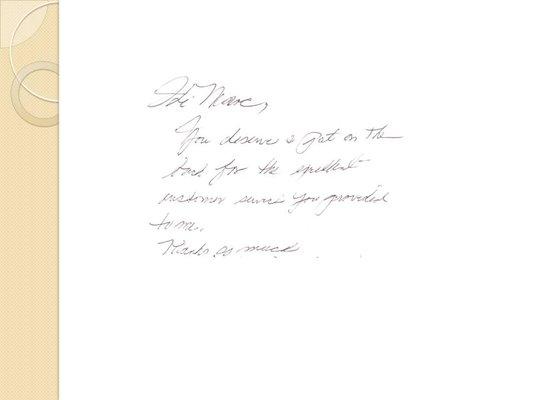 Hi Marc,
You deserve a pat on the
back for the excellent
customer service you provided
to me.
Thanks so much